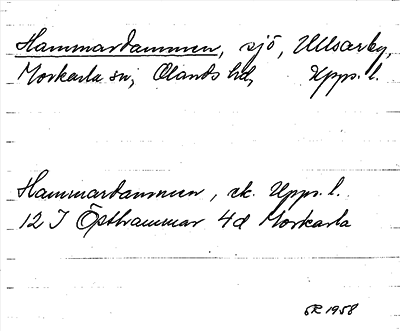 Hammardammen, sjö, Ullsarby,
Morkarla sn, Olands hd, Upps. l.
Hammardammen, ek. Upps. l.
12 I Östhammar 4d Morkarla
1958